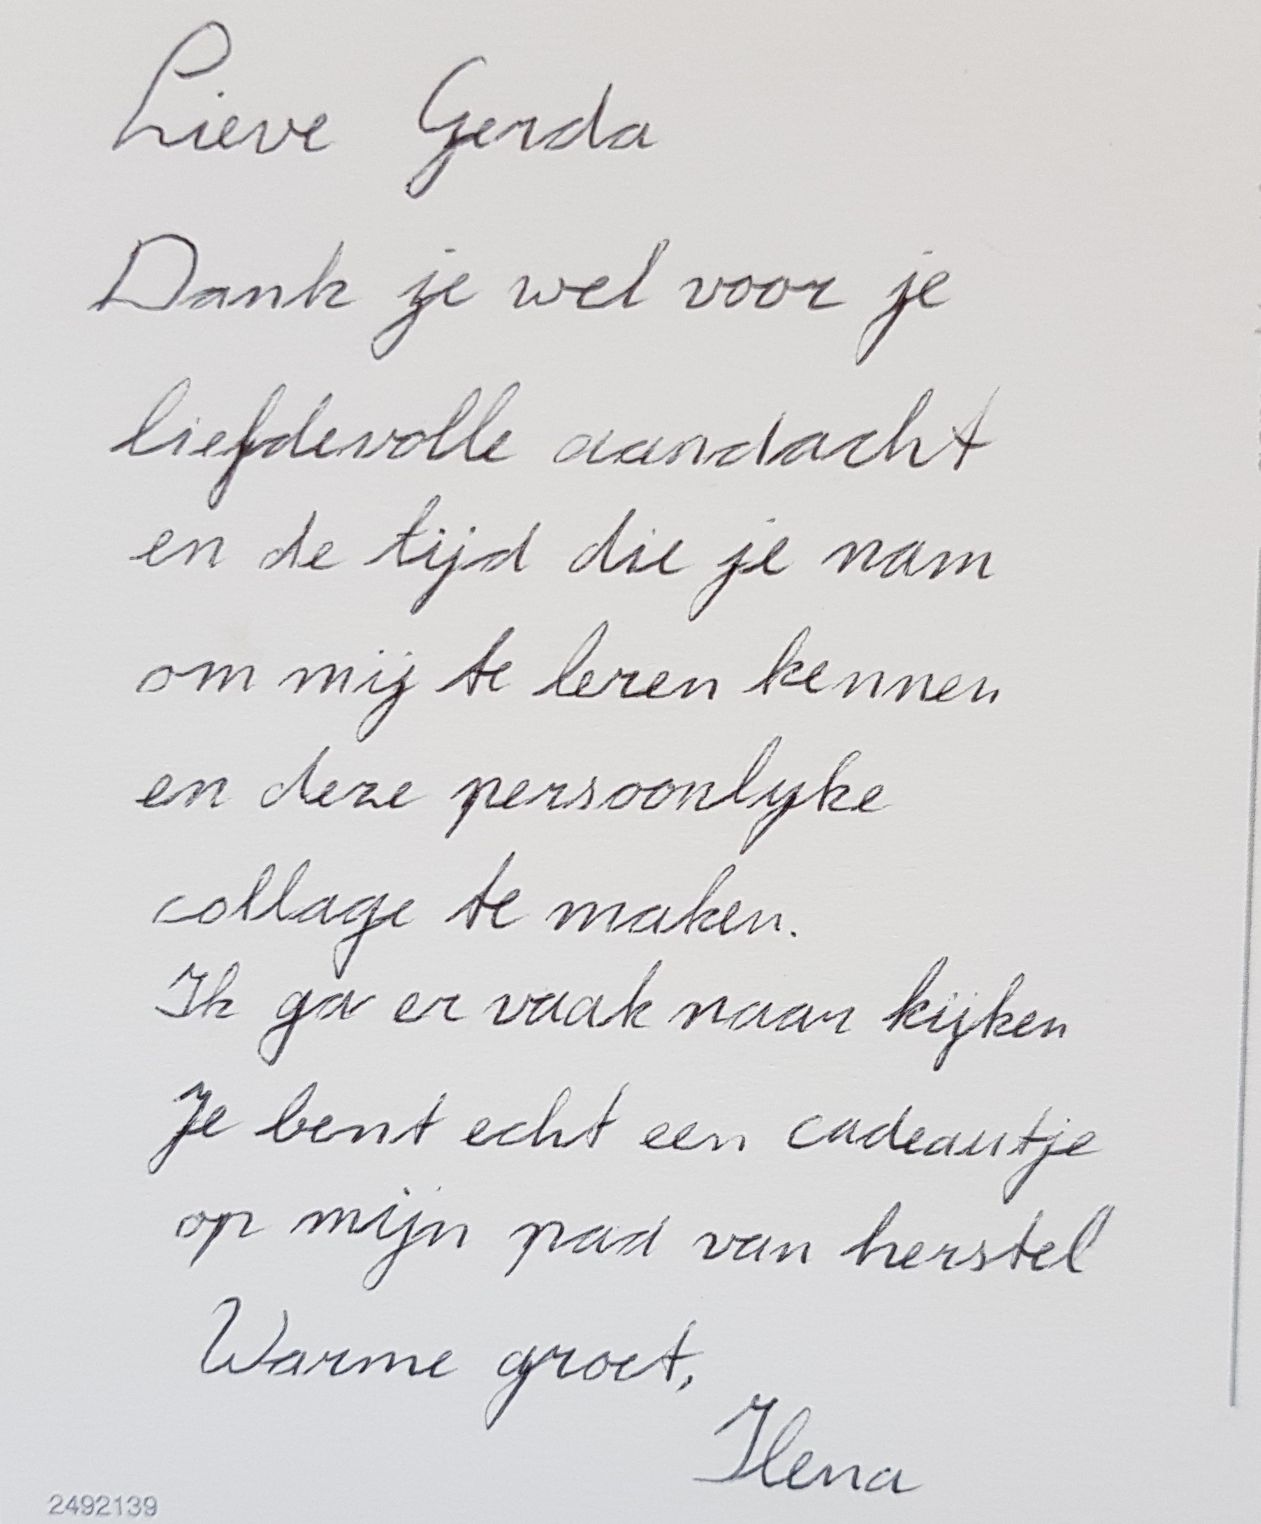 Lieve Gerda
Dank je wel voor je
liefdevolle aandacht
en de tijd die je nam
om mij te leren kennen
en deze persoonlijke
collage te maken.
Ik ga er vaak naar kijken
Je bent echt een cadeautje
op mijn pad van herstel
Warme groet,
Ilena
2492139